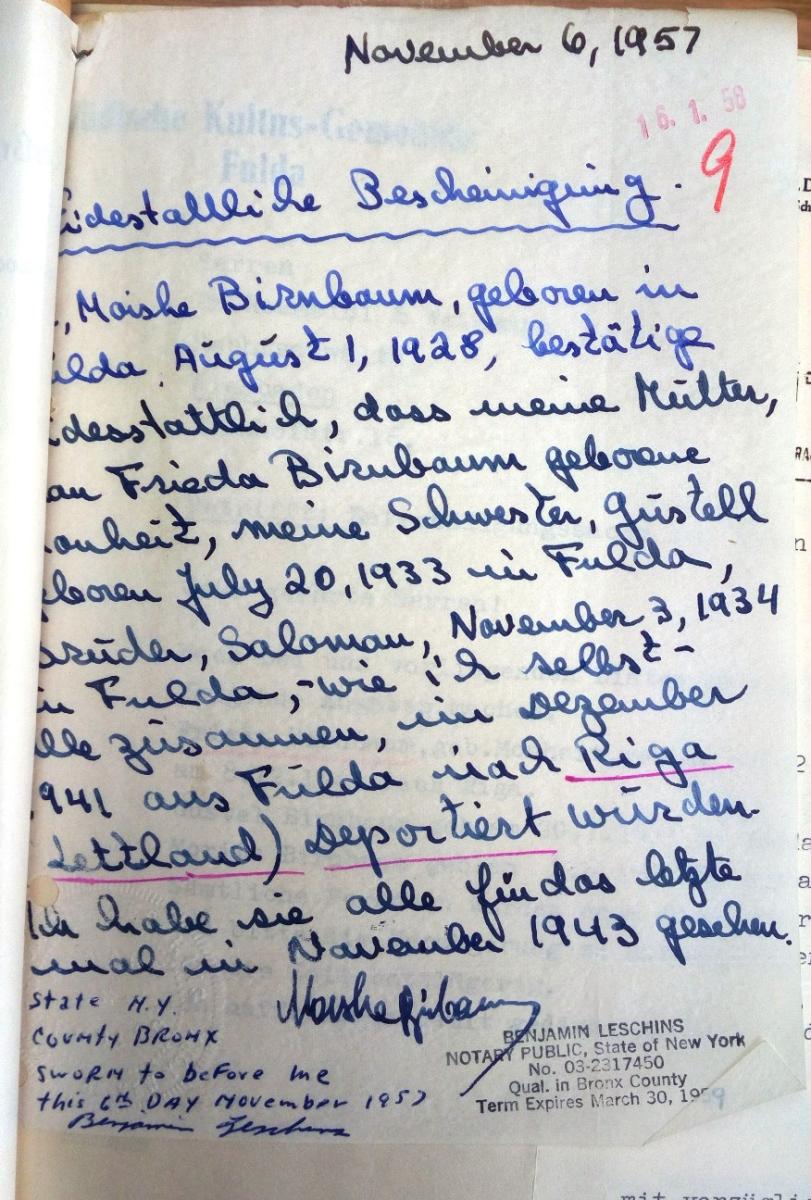 November 6, 1957
16. 1. 58
9
idestattliche Bescheinigung.
, Moishe Birnbaum, geboren in
ulda, August 1, 1928, bestätige
idesstattlich, dass meine Mutter,
au Frieda Birnbaum geborene
onheit, meine Schwester, Gustell
eboren July 20, 1933 in Fulda,
Bruder, Saloman, November 3, 1934
in Fulda, - wie ich selbst -
lle zusammen, im Dezember
1941 aus Fulda nach Riga
Lettland) Deportiert wurden.
Ich habe sie alle für das letzte
mal in November 1943 gesehen.
State N.Y.
County BRONX
SWORN to before me
this 6th DAY November 1957
Benjamin Leschins
Moishe Birnbaum
BENJAMIN LESCHINS
NOTARY PUBLIC, State of New York
No. 03-2317450
Qual. in Bronx County
Term Expires March 30, 1959
Jüdische Kultus-Gemeinde
Fulda